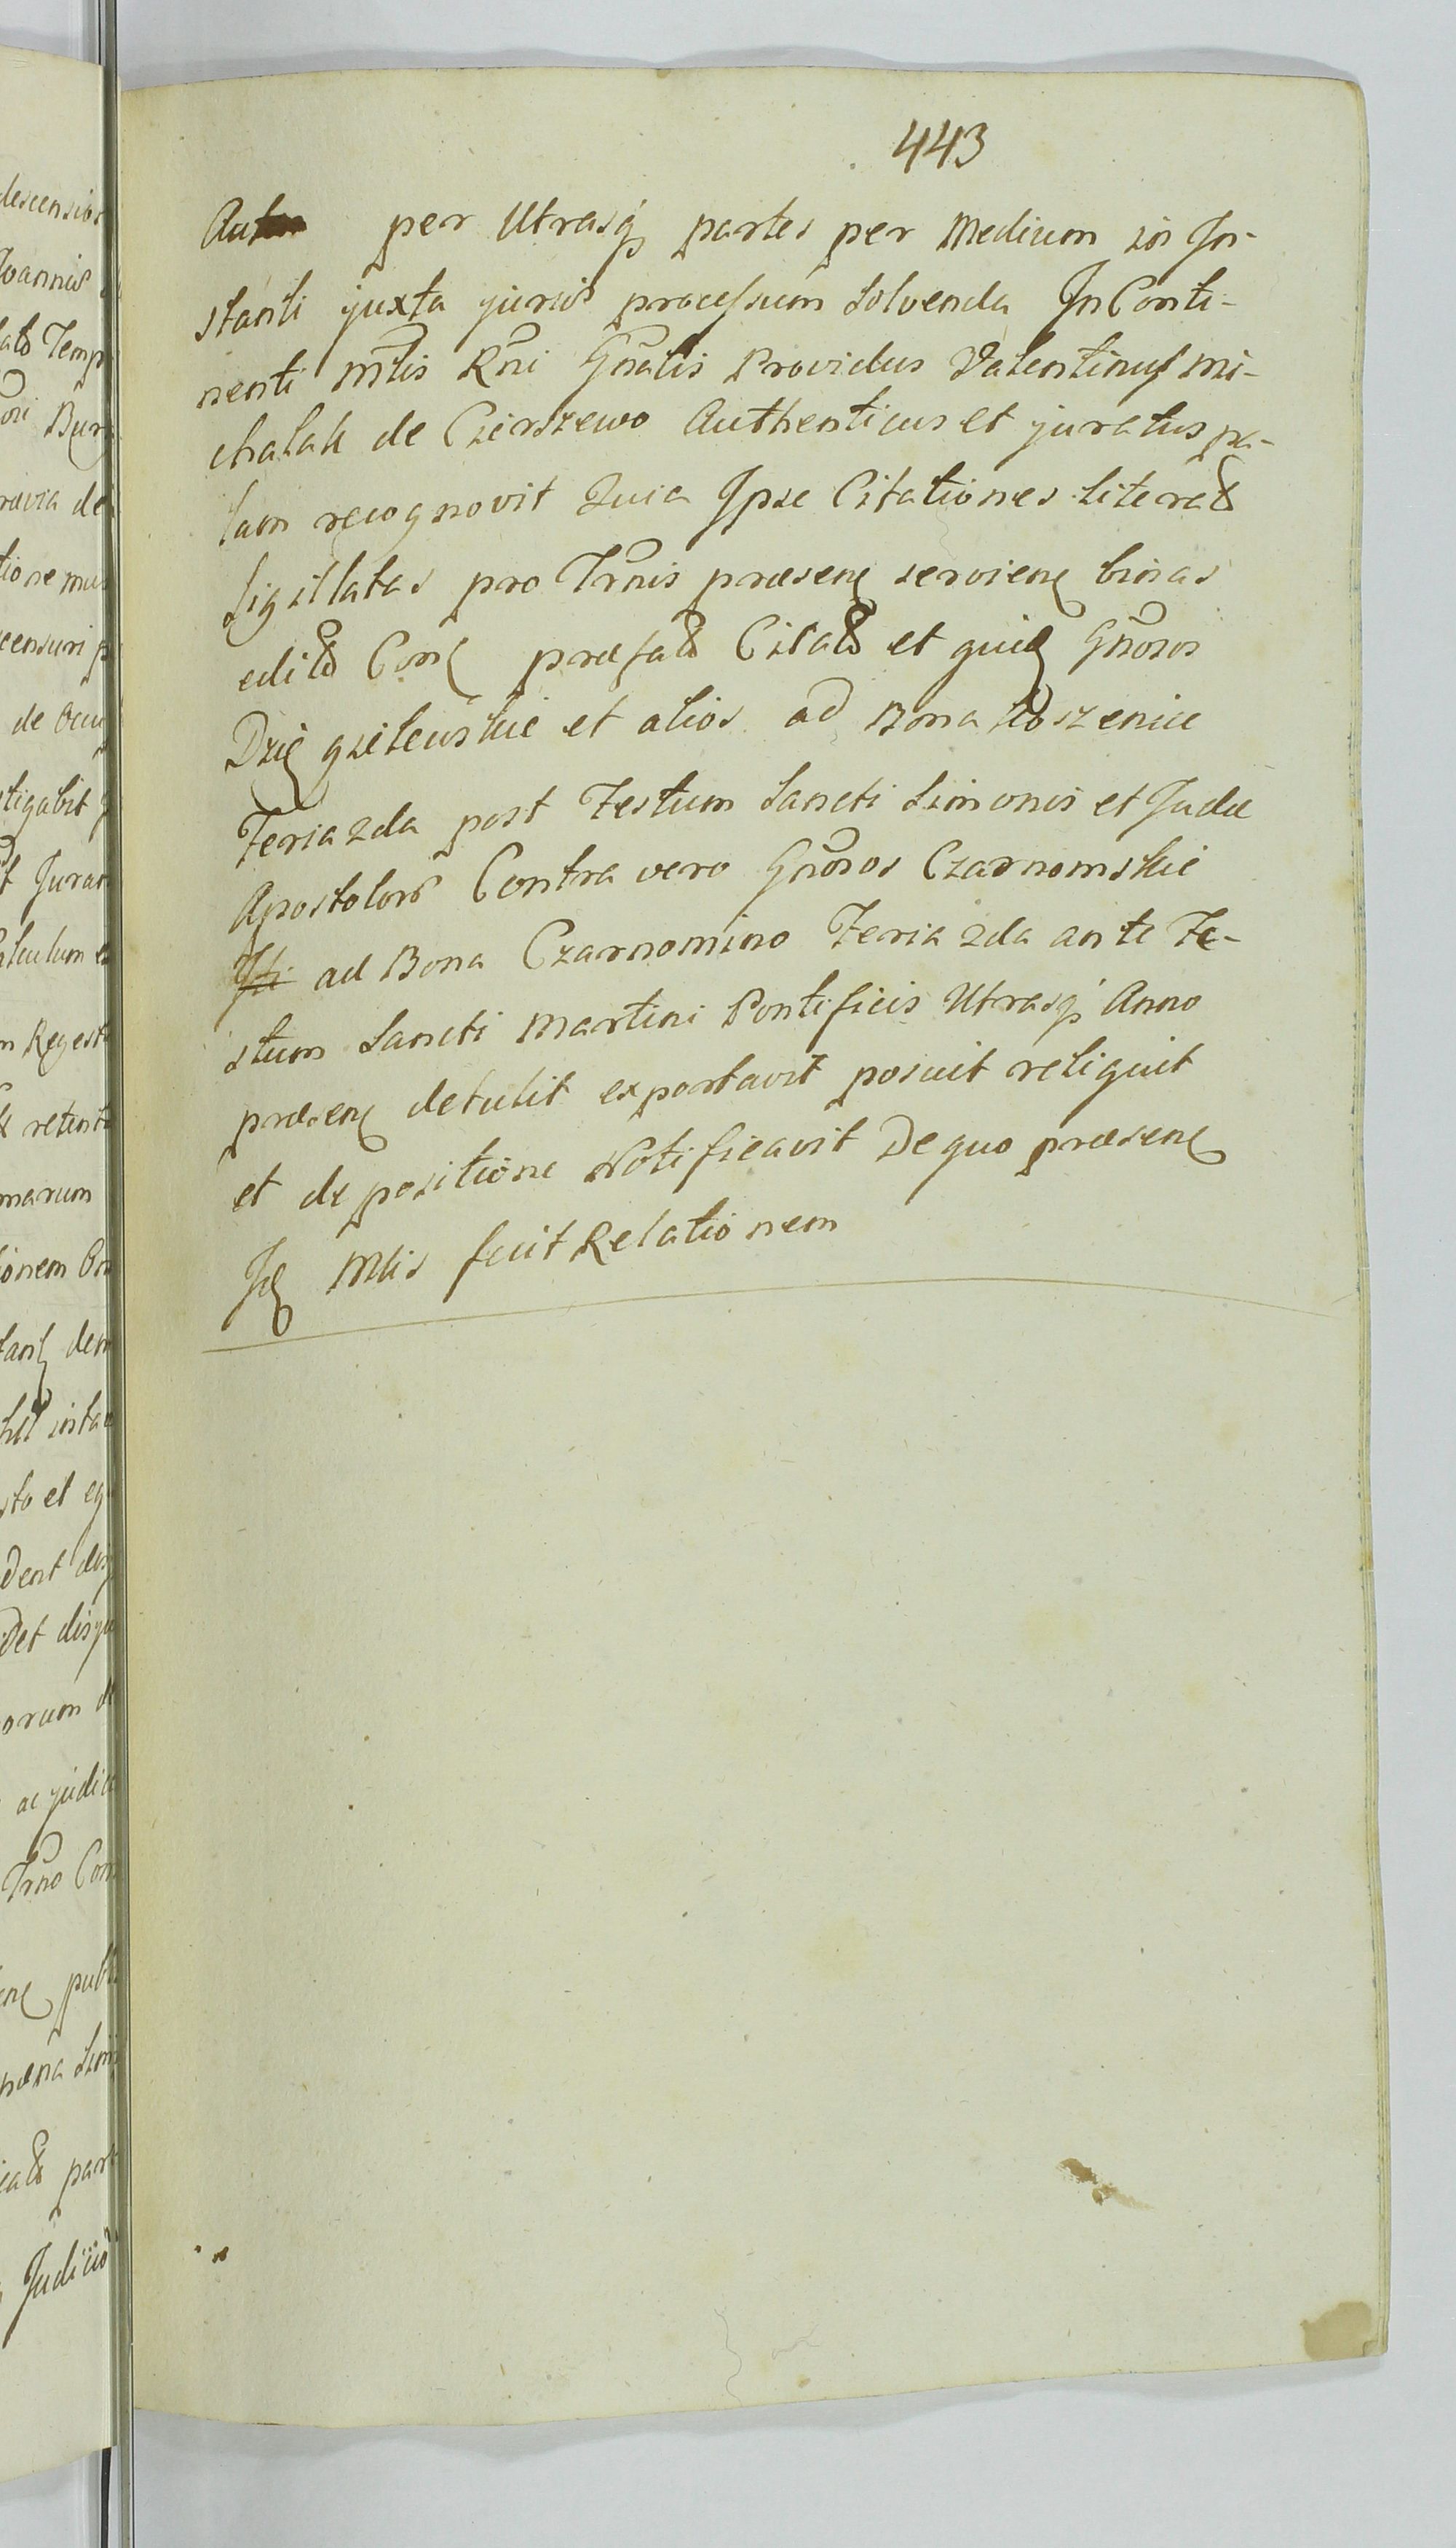 443
per Utrasq partes per Medium in In-
stanti juxta juris processum Solvenda In Conti-
nenti Mtis Rni Gnalis Providus Valentinus Mi-
chalak de Czerszewo Authenticus et juratus pa-
lam recognovit Quia Ipse Citationes literas
Sigillatas pro Trnis praesen servien binas
edit Con praefat Citat et quid Gnosos
et alios ad Bona
Feria 2da post Festum Sancti Simonis et Judae
Apostolor Contra vero Gnosos Czarnomskie
ad Bona Czarnomino Feria 2da ante Fe-
stum Sancti Martini Pontificis Utrasq Anno
praesen detulit exportavit posuit reliquit
et de positione Notificavit De quo praesen
Id Mtis fecit Relationem
descensio
Joannis
Temp
Bur
de
tione
censuri
de
tigabit
Juran
Regest
retent
marum
ionem
dem
sto et eq
Det
orum
ac judic
Trno Con
publ
part
Judicio